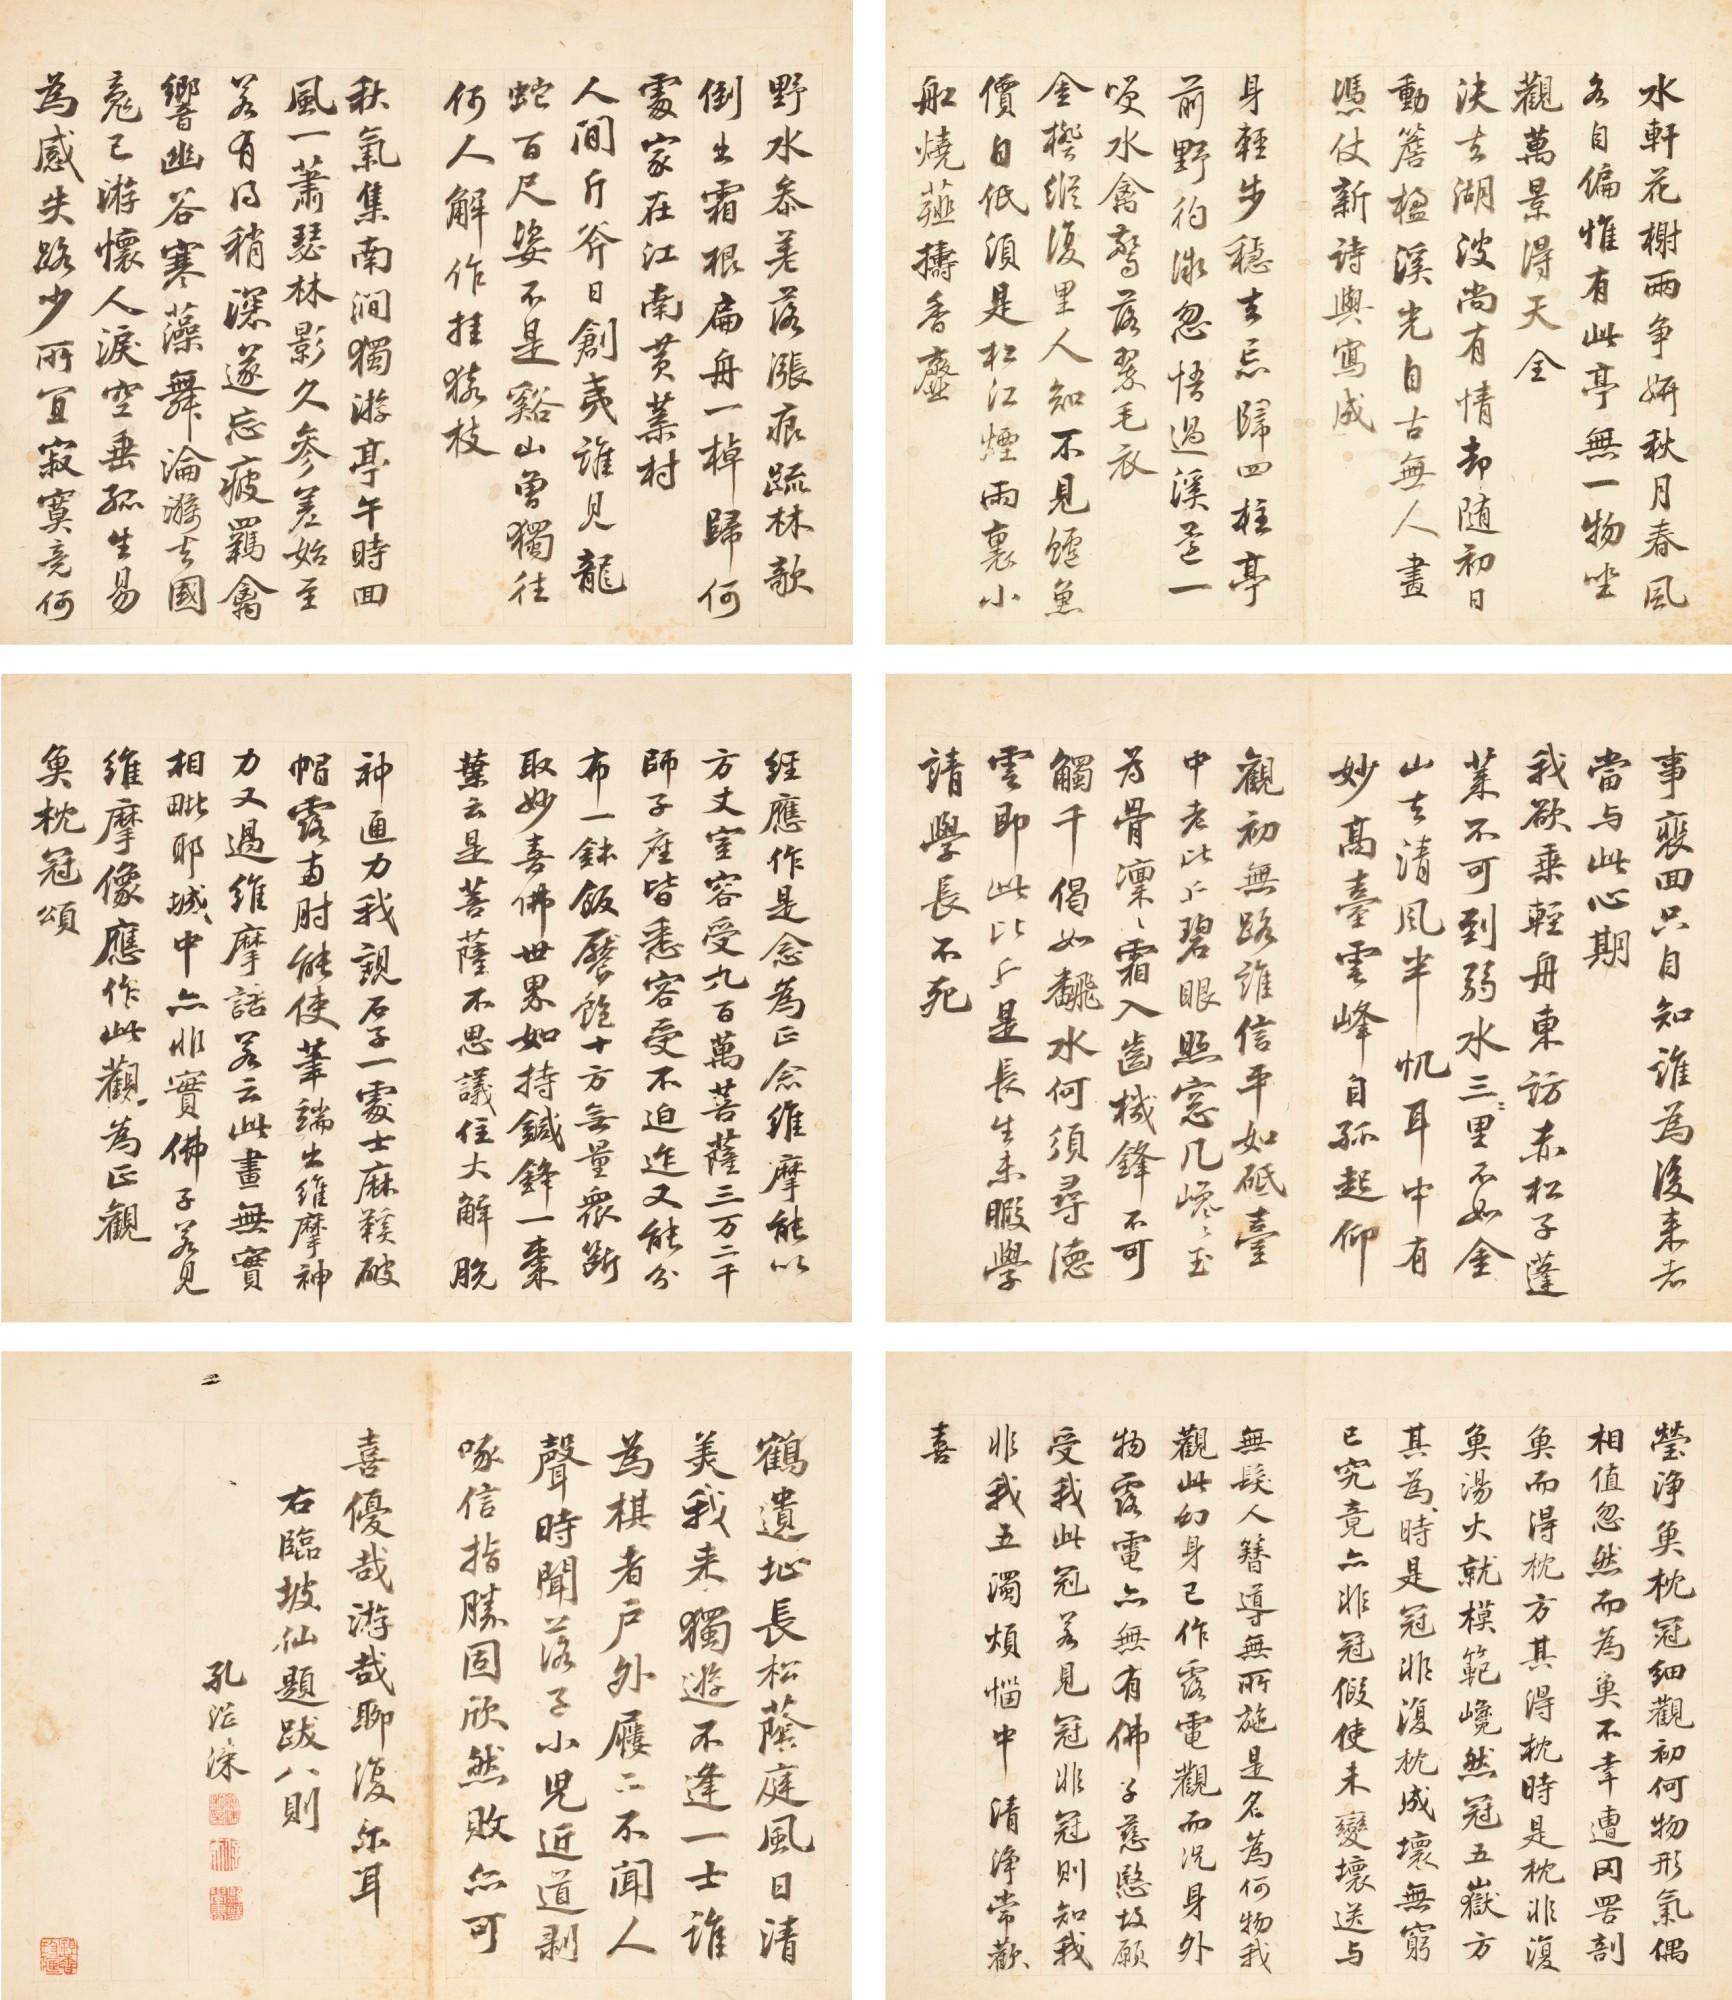 水軒花榭兩爭妍秋月春風
各自偏惟有此亭無一物坐
觀萬景得天全
決去湖波尚有情却隨初日
動簷楹溪光自古無人畫
憑仗新詩與寫成
身輕步穩去忘歸四柱亭
前野彴微忽悟過溪還一
笑水禽驚落翠毛衣
金橙縱復里人知不見鱸魚
價自低須是松江煙雨裏小
船燒薤擣香虀
野水參差落漲痕疏林欹
倒出霜根扁舟一棹歸何
處家在江南黃葉村
人間斤斧日創夷誰見龍
蛇百尺姿不是谿山曾獨往
何人解作挂猿枝
秋氣集南澗獨游亭午時回
風一蕭瑟林影久參差始至
若有得稍深遂忘疲羈禽
響幽谷寒藻舞淪漪去國
魂已游懷人淚空垂孤生易
為感失路少所宜寂寞竟何
事裴回只自知誰為後來者
當与此心期
我欲乘輕舟東訪赤松子蓬
萊不可到弱水三三里不如金
山去清風半帆耳中有
妙高臺雲峰自孤起仰
觀初無路誰信平如砥臺
中老比丘碧眼照窓几巉巉玉
為骨凜凜霜入齒機鋒不可
觸千偈如翻水何須尋德
雲即此比丘是長生未暇學
請學長不死
經應作是念為正念維摩能以
方丈室容受九百萬菩薩三万二千
師子座皆悉容受不迫迮又能分
布一鉢飯饜飽十方無量衆斷
取妙喜佛世界如持鍼鋒一棗
葉云是菩薩不思議住大解脫
神通力我觀石子一處士麻鞵破
帽露兩肘能使筆端出維摩神
力又過維摩詰若云此畫無實
相毗耶城中亦非實佛子若見
維摩像應作此觀為正觀
魚枕冠頌
瑩淨魚枕冠細觀初何物形氣偶
相值忽然而為魚不幸遭网罟剖
魚而得枕方其得枕時是枕非復
魚湯火就模範巉然冠五嶽方
其為時是冠非復枕成壞無窮
已究竟亦非冠假使未變壞送与
無髮人簪導無所施是名為何物我
觀此幻身已作露電觀而況身外
物露電亦無有佛子慈愍故願
受我此冠若見冠非冠則知我
非我五濁煩惱中清淨常歡
喜
鶴遺址長松蔭庭風日清
美我來獨遊不逢一士誰
為棋者戶外屨二不聞人
聲時聞落子小兒近道剥
啄信指勝固欣然敗亦可
喜優哉游哉聊復尔耳
右臨坡仙題跋八則
孔